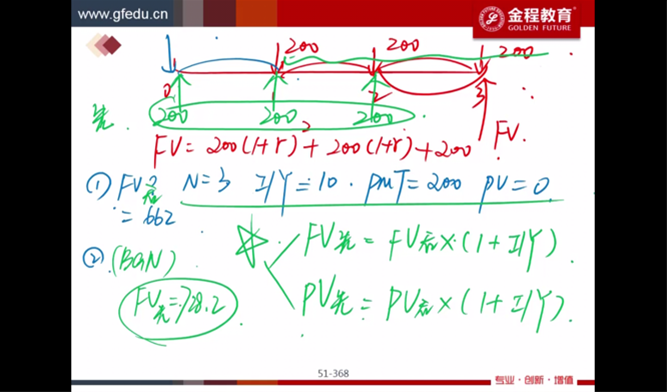 www.gfedu.cn
金程教育
GOLDEN FUTURE
200 200 200
0 1 2 3
先 200 200 200
FV = 200(1+r)² + 200(1+r) + 200 FV
① FV后 N=3 I/Y=10 . PMT=200 PV=0
= 662
② (BGN) FV先 = FV后 × (1+I/Y)
FV先=728.2 PV先 = PV后 × (1+I/Y)
51-368
专业·创新·增值